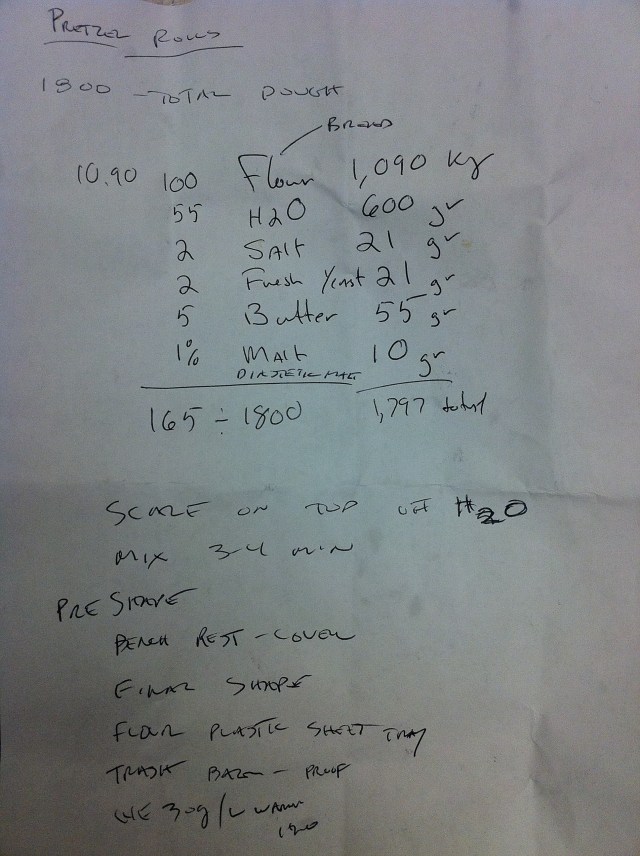 PRETZEL ROLLS
1800 - TOTAL DOUGH
BREAD
10.90 100 Flour 1,090 Kg
55 H2O 600 gr
2 SAlt 21 gr
2 Fresh Yeast 21 gr
5 Butter 55 gr
1% MAlt 10 gr
165 ÷ 1800 1,797 total
SCALE ON TOP OFF H2O
MIX 3-4 MIN
PRE SHAPE
BENCH REST - COVER
FINAL SHAPE
FLOUR PLASTIC SHEET TRAY
TRASH BAG - PROOF
30g/L WARM
120